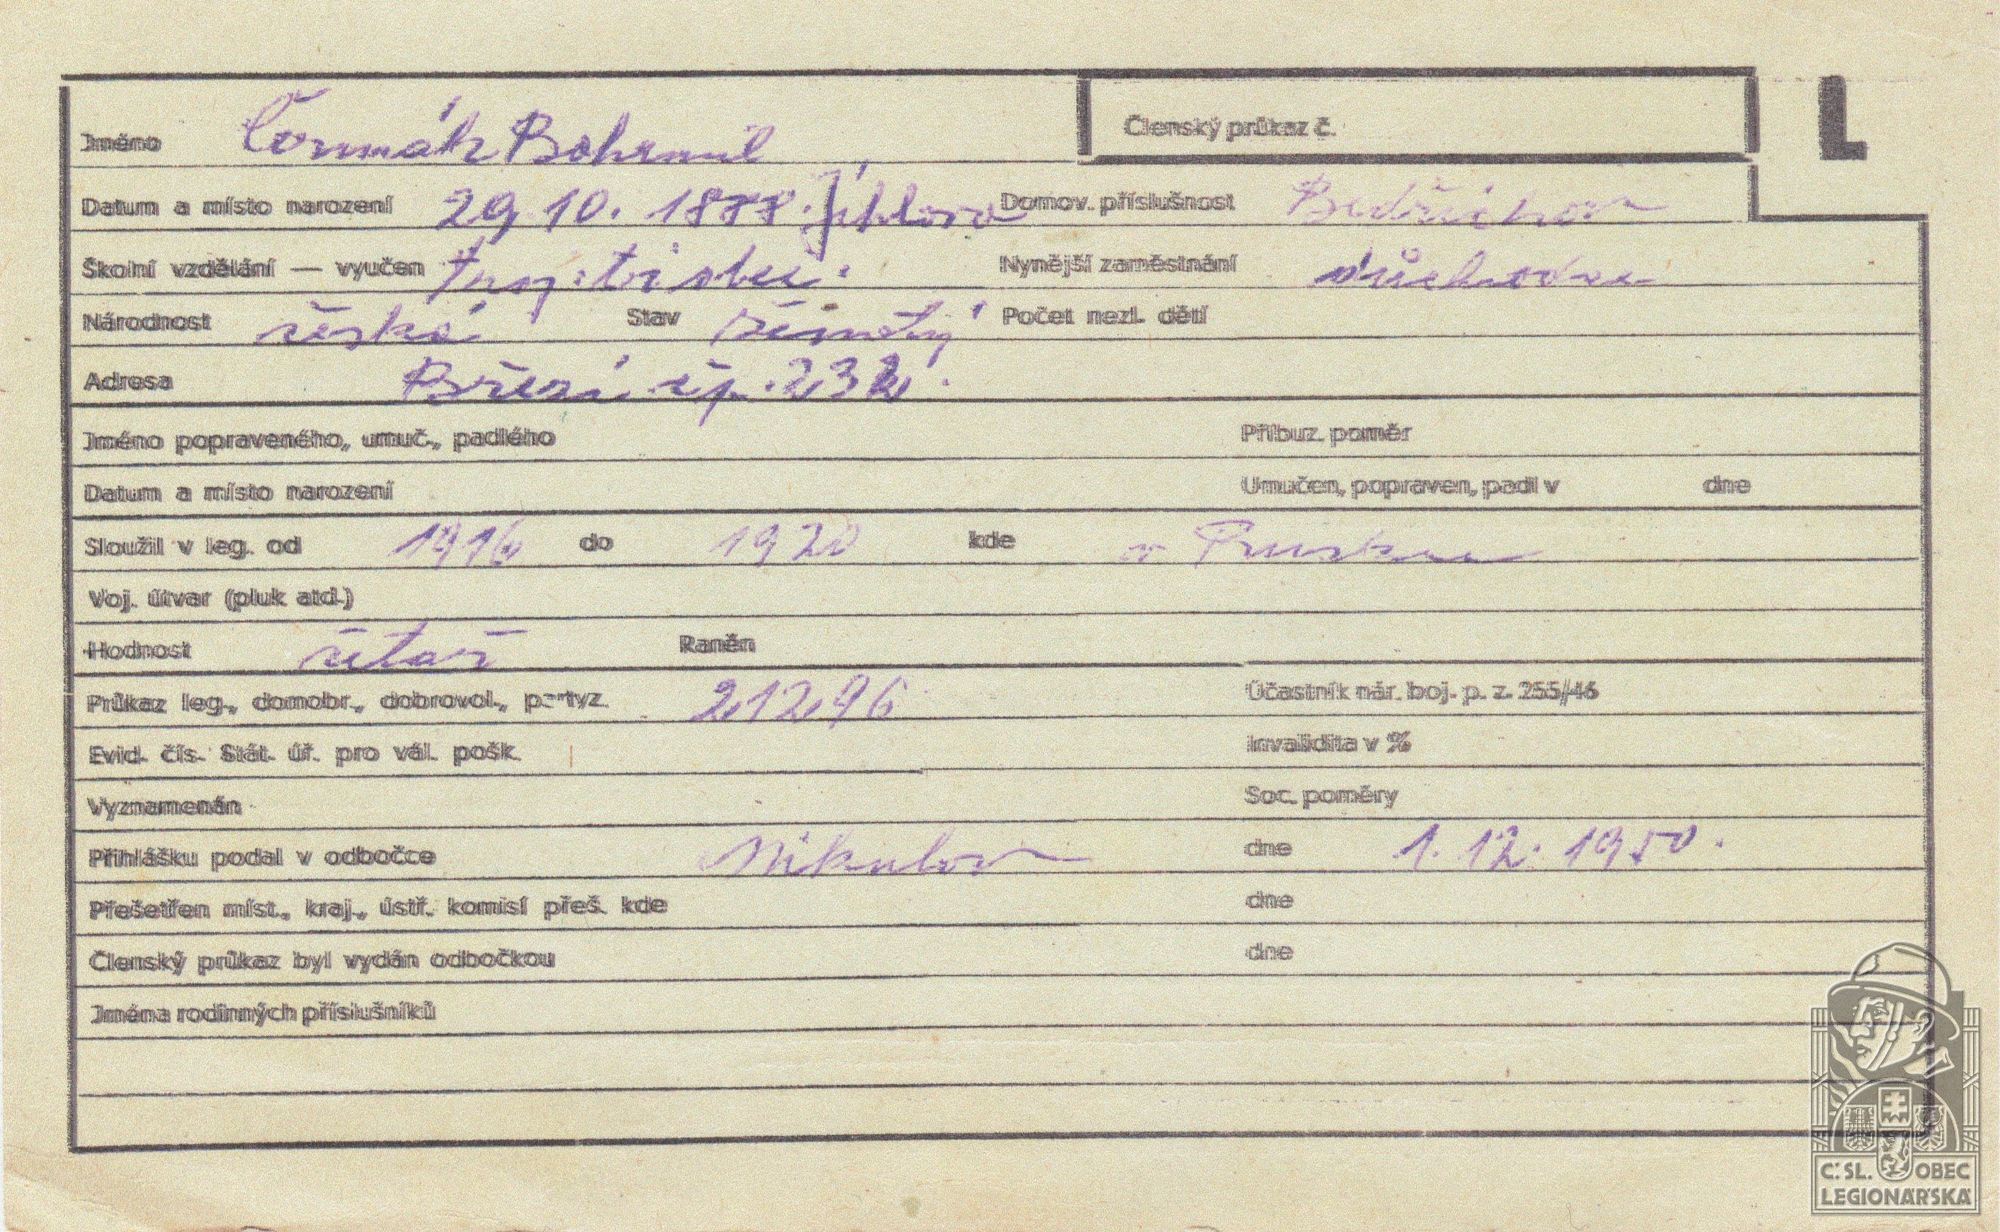 Jméno Čermák Bohumil Členský průkaz č. L
Datum a místo narození 29.10.1888. Jihlava Domov. příslušnost Bedřichov
Školní vzdělání — vyučen Nynější zaměstnání důchodce
Národnost česká Stav ženatý Počet nezl. dětí
Adresa Březí čp. 232.
Jméno popraveného, umuč., padlého Příbuz. poměr
Datum a místo narození Umučen, popraven, padl v dne
Sloužil v leg. od 1916 do 1920 kde v Rusku
Voj. útvar (pluk atd.)
Hodnost četař Raněn
Průkaz leg., domobr., dobrovol., partyz. 21296 Účastník nár. boj. p. z. 255/46
Evid. čís. Stát. úř. pro vál. pošk. Invalidita v %
Vyznamenán Soc. poměry
Přihlášku podal v odbočce Mikulov dne 1.12.1950.
Přešetřen míst., kraj., ústř. komisí přeš. kde dne
Členský průkaz byl vydán odbočkou dne
Jména rodinných příslušníků
Č.SL. OBEC
LEGIONÁŘSKÁ